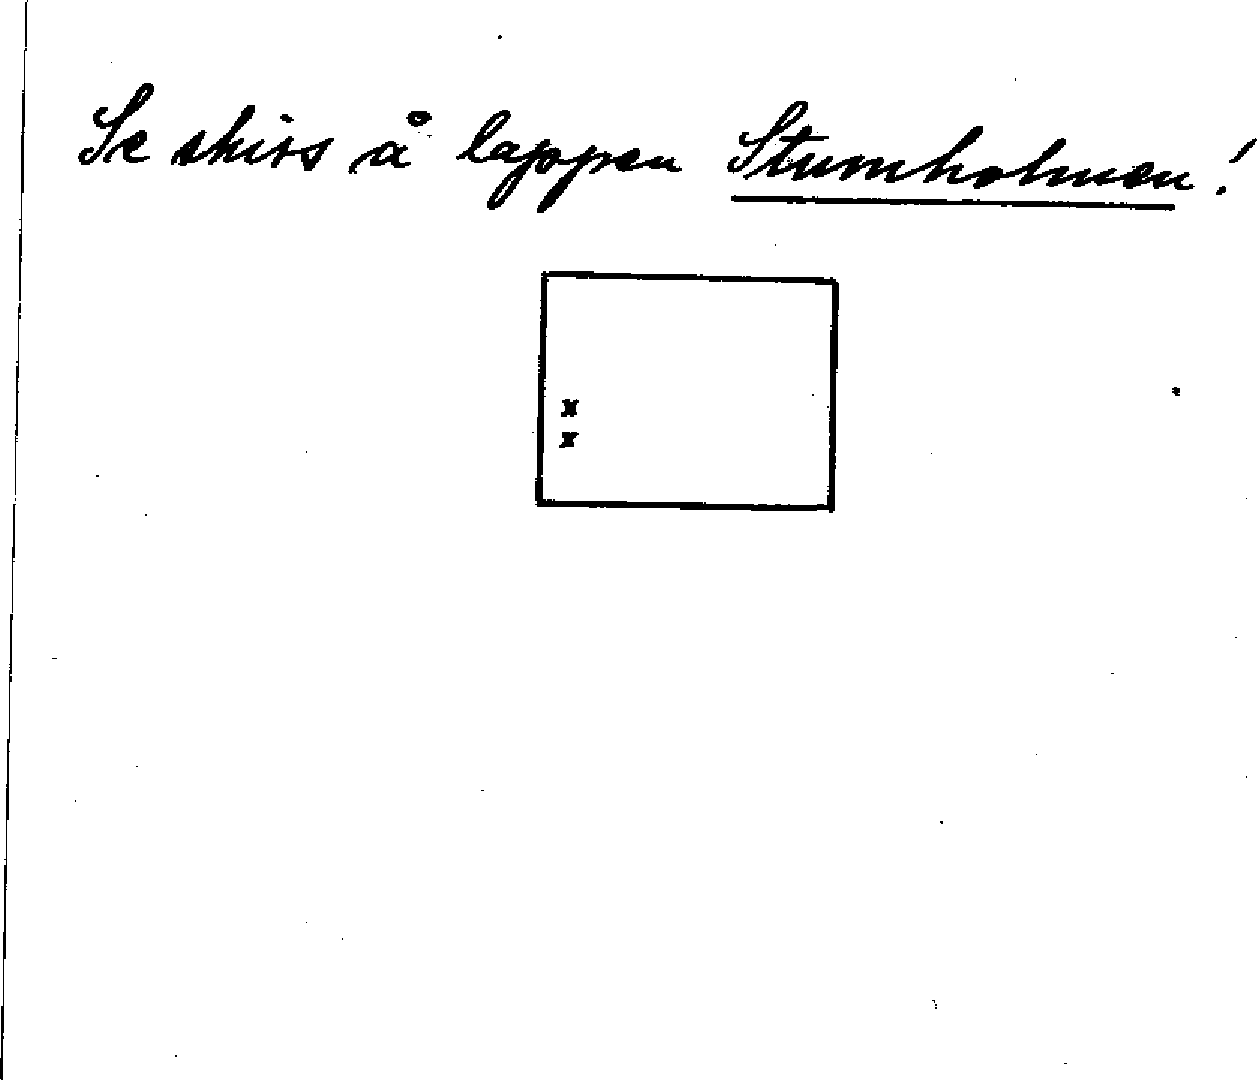 Se skiss å lappen Stumholmen!
x
x